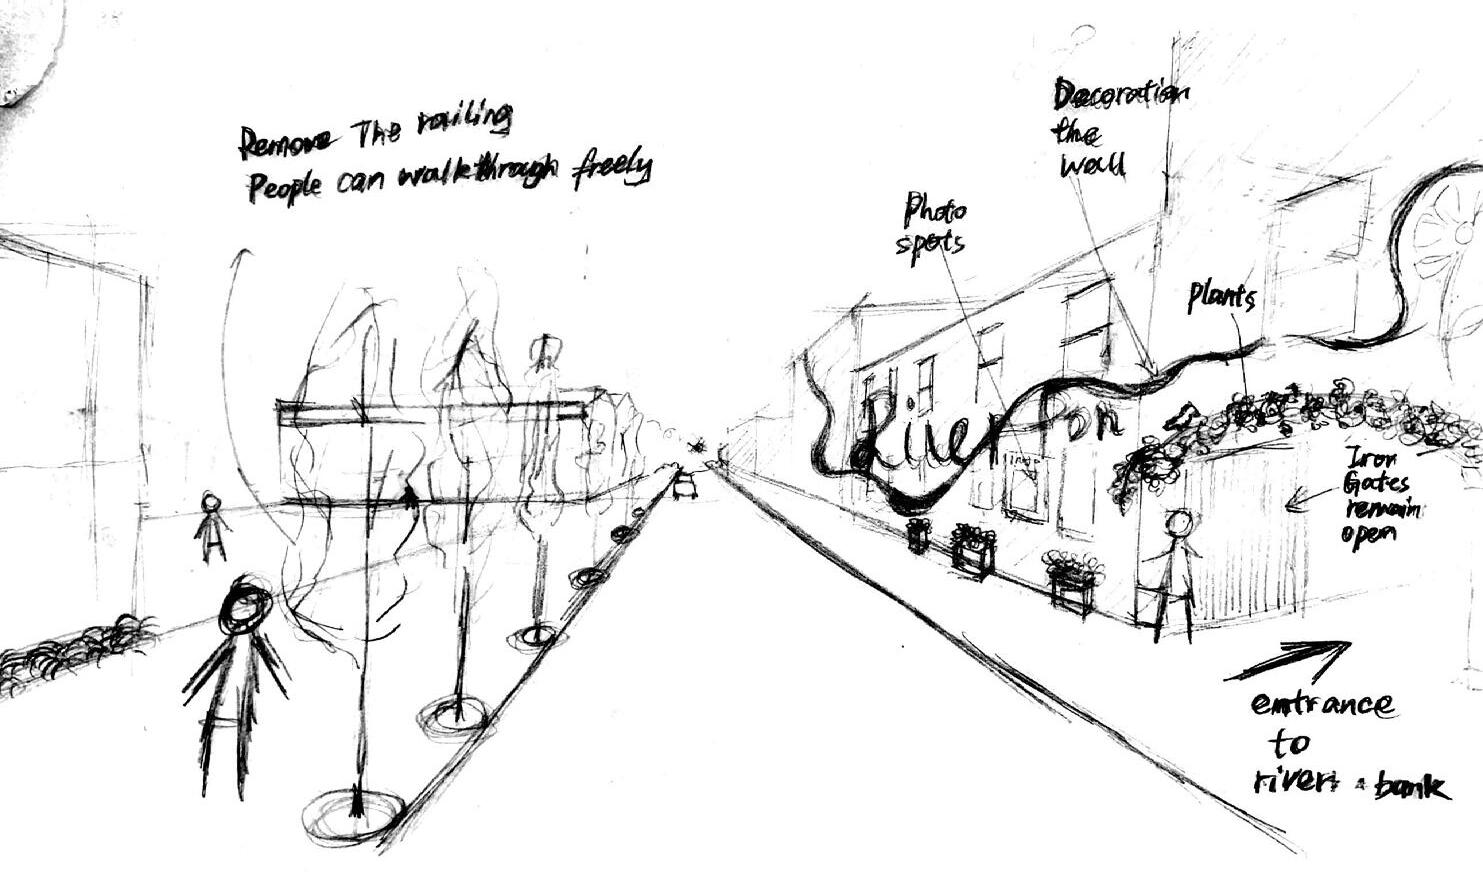 Remove The railing
People can walk through freely
Decoration
the
wall
Photo
spots
plants
River
Iron
Gates
remain
open
entrance
to
river bank